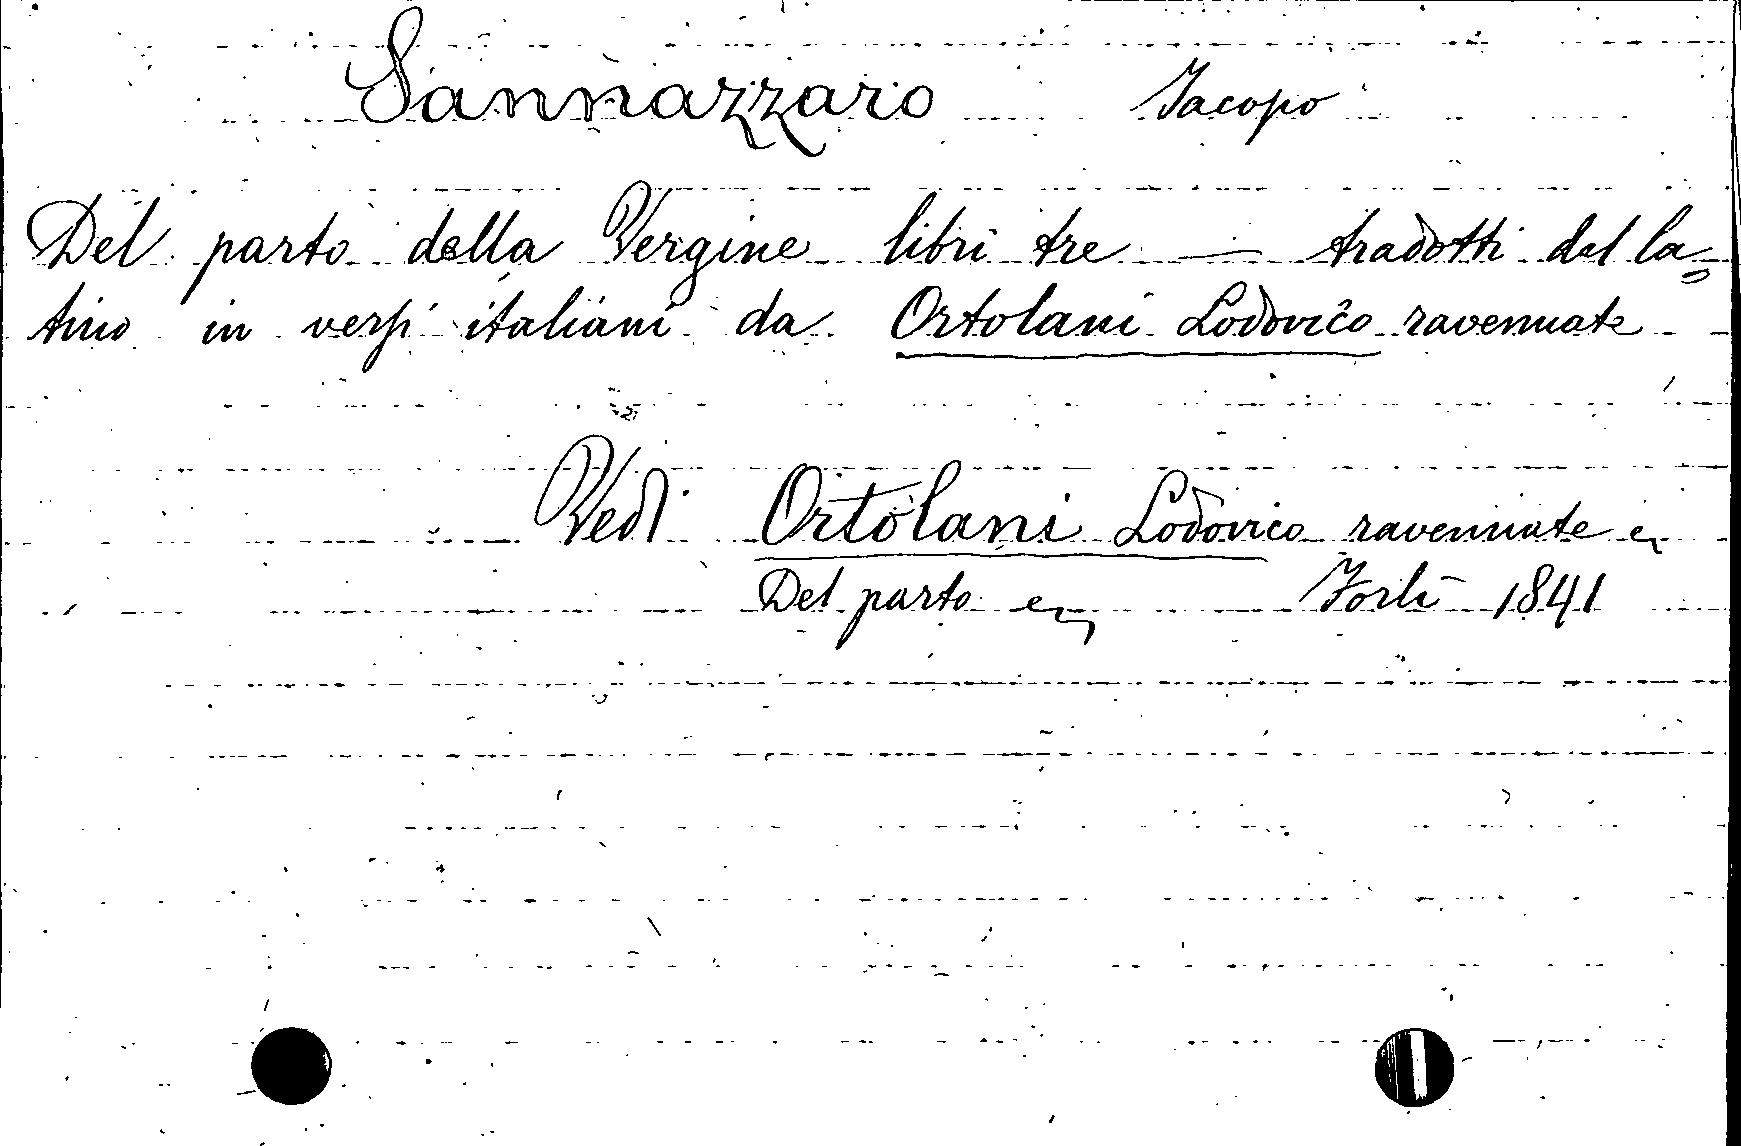 Sannazzaro Jacopo
Del parto della Vergine libri tre — tradotti dal la=
tino in versi italiani da Ortolani Lodovico ravennate
Vedi Ortolani Lodovico ravennate e
Del parto e Forlì 1841